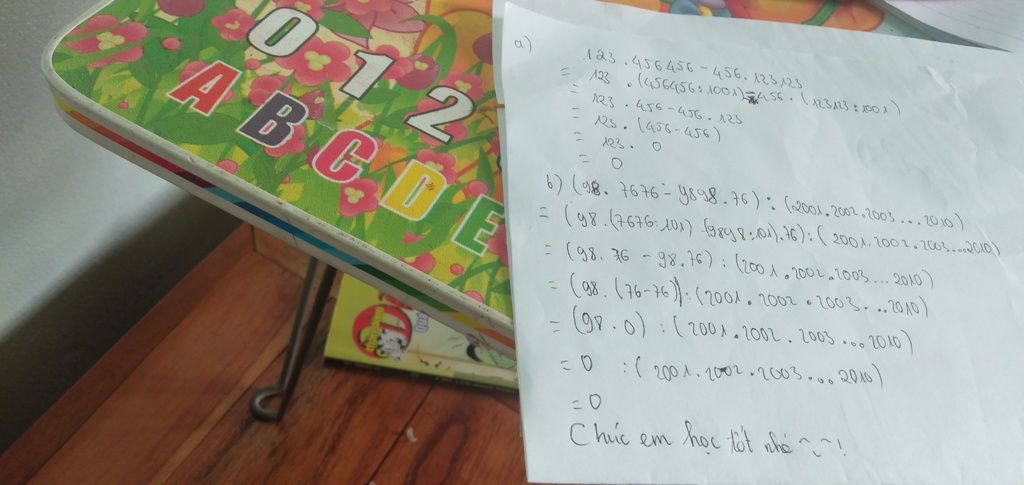 0 1 2
A B C D E
a)
123 . 456456 - 456 . 123123
= 123 . (456456 : 1001) - 456 . (123123 : 1001)
= 123 . 456 - 456 . 123
= 123 . (456 - 456)
= 123 . 0
= 0
b) (98 . 7676 - 9898 . 76) : (2001 . 2002 . 2003 ... 2010)
= (98 . (7676 : 101) - (9898 : 101) . 76) : (2001 . 2002 . 2003 ... 2010)
= (98 . 76 - 98 . 76) : (2001 . 2002 . 2003 ... 2010)
= (98 . (76 - 76)) : (2001 . 2002 . 2003 ... 2010)
= (98 . 0) : (2001 . 2002 . 2003 ... 2010)
= 0 : (2001 . 2002 . 2003 ... 2010)
= 0
Chúc em học tốt nhé ~ ~ !